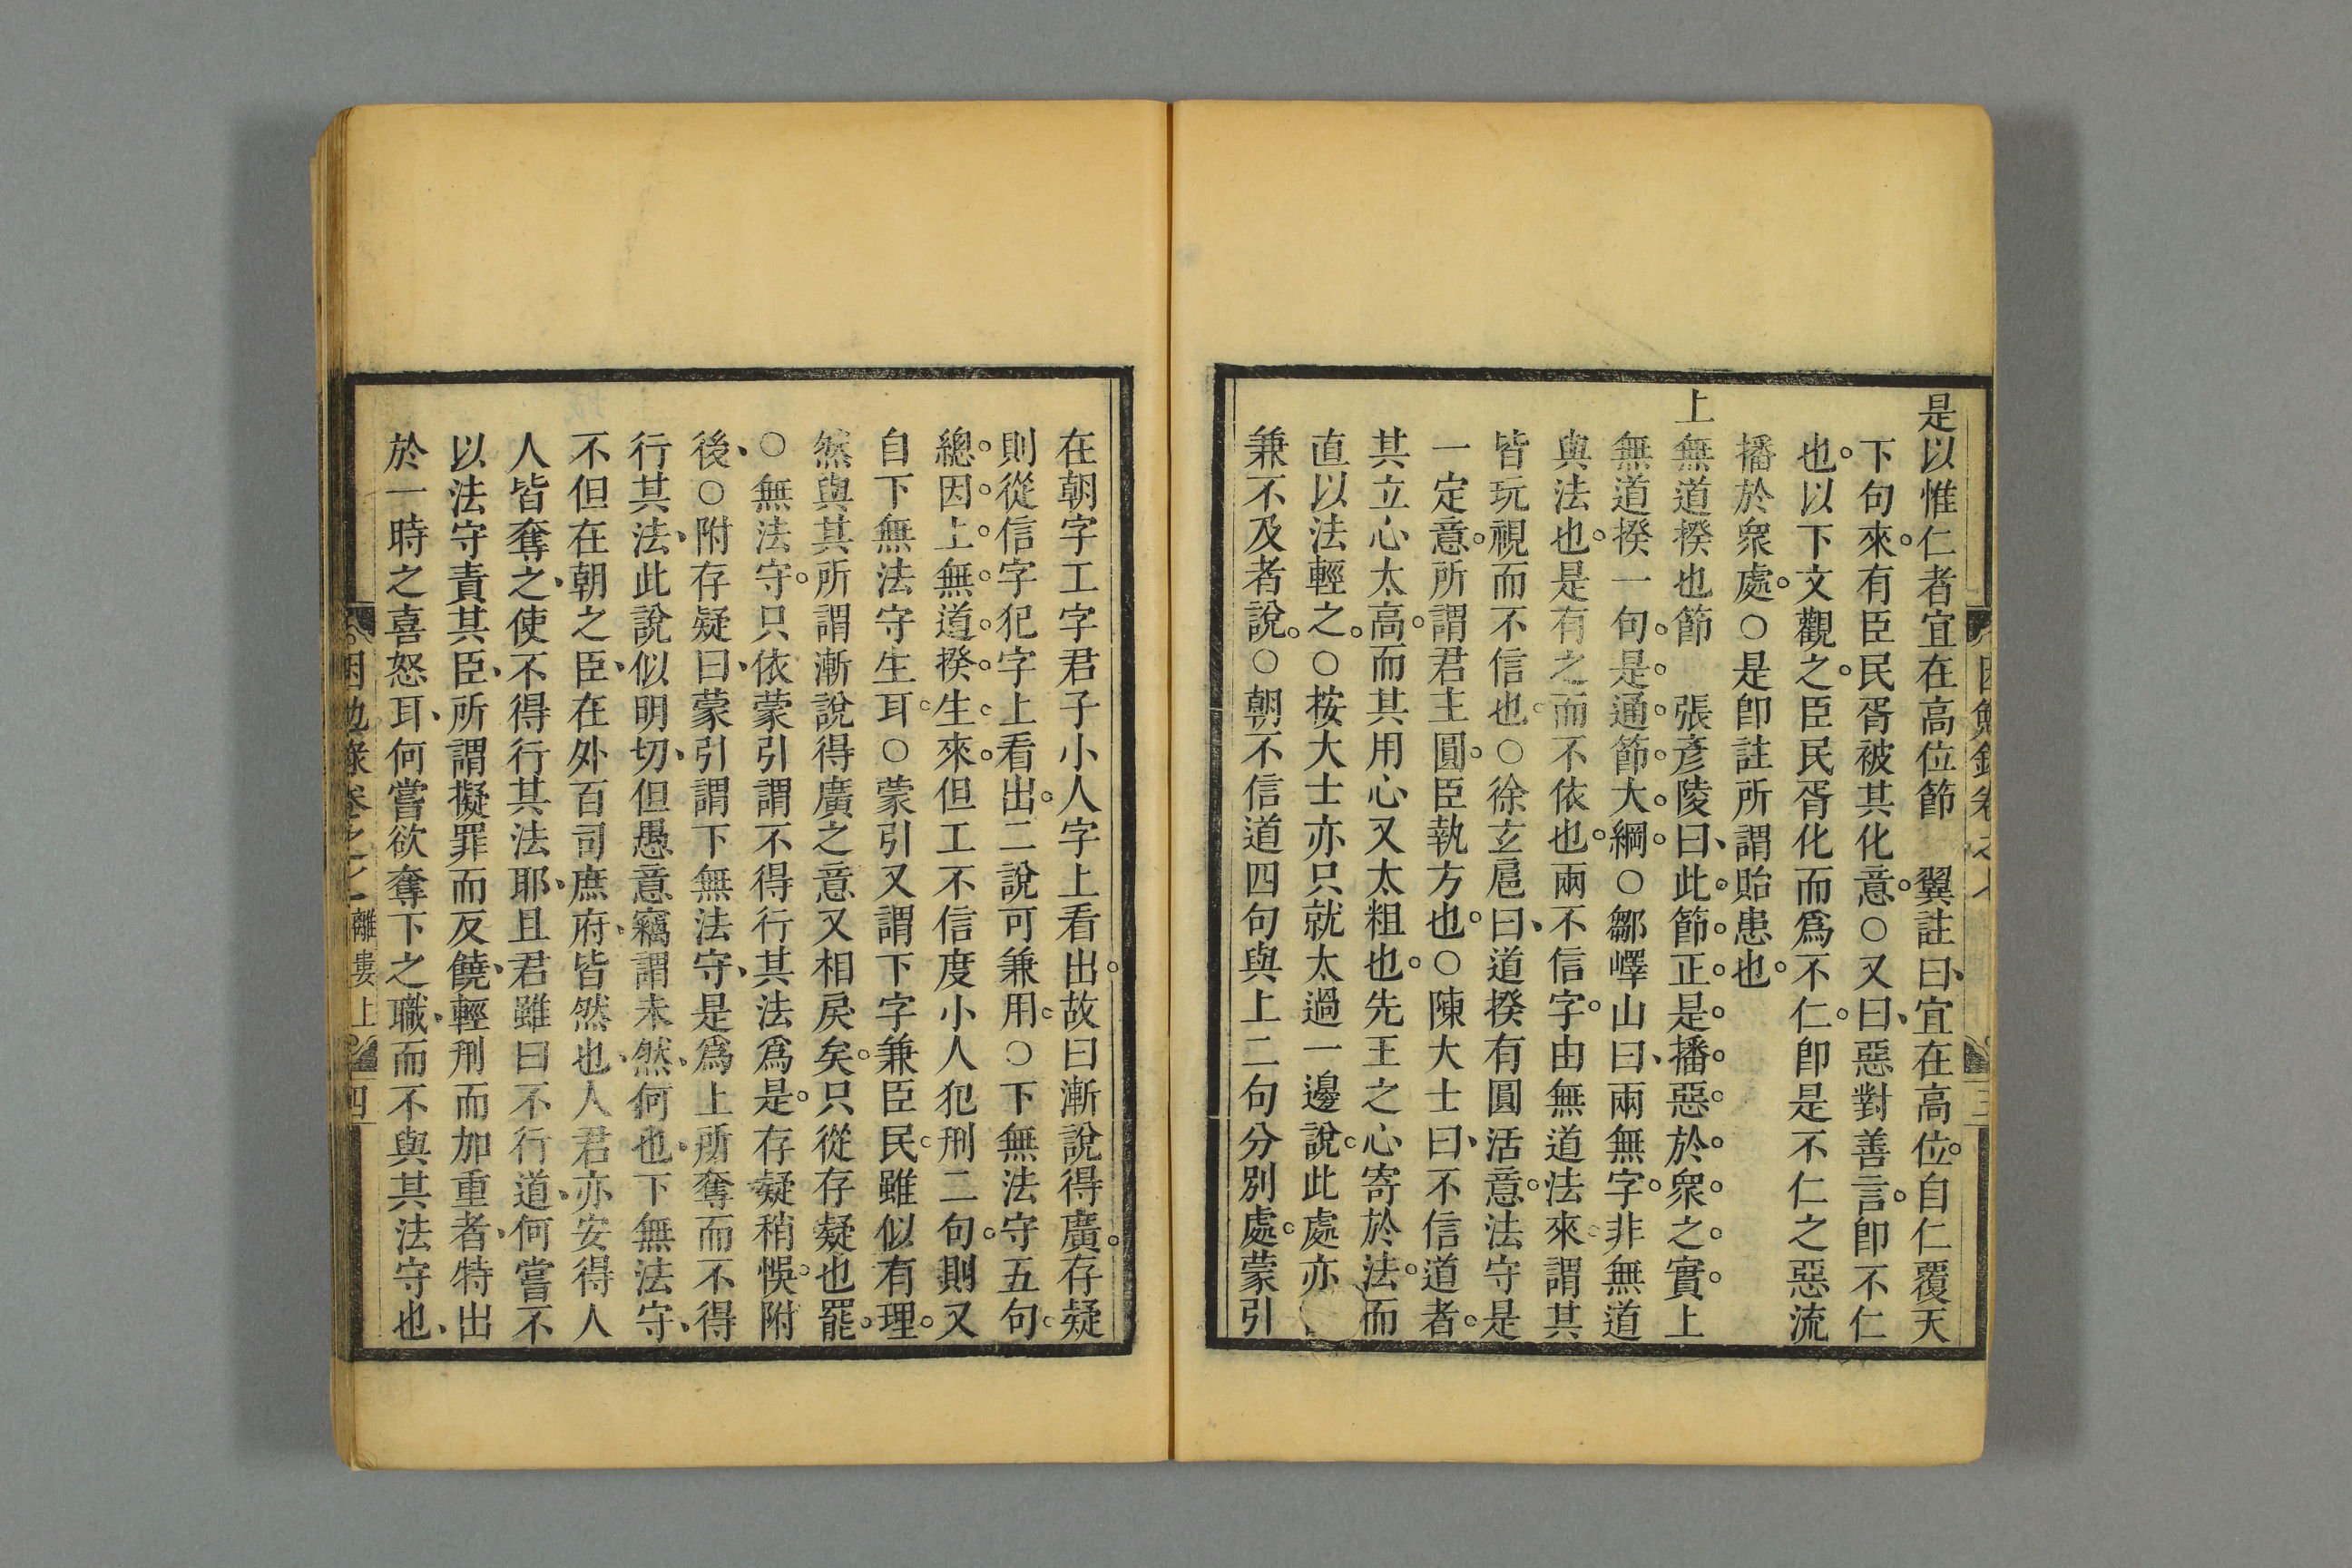 是以惟仁者宜在高位節　翼註曰、宜在高位。自仁覆天
下句來。有臣民胥被其化意。○又曰、惡對善言。卽不仁
也。以下文觀之。臣民胥化而爲不仁。卽是不仁之惡流
播於衆處。○是卽註所謂貽患也。
上無道揆也節　張彥陵曰、此。節。正。是。播。惡。於。衆。之。實。上
無道揆一句。是。通。節。大。綱。○鄒嶧山曰、兩無字。非無道
與法也。是有之而不依也。兩不信字。由無道法來。謂其
皆玩視而不信也。○徐玄扈曰、道揆有圓活意。法守是
一定意。所謂君主圓。臣執方也。○陳大士曰、不信道者。
其立心太高。而其用心又太粗也。先王之心寄於法。而
直以法輕之。○按大士亦只就太過一邊說。此處亦
兼不及者說。○朝不信道四句與上二句分別處。蒙引
在朝字工字君子小人字上看出。故曰漸說得廣。存疑
則從信字犯字上看出。二說可兼用。○下無法守五句。
總。因。上。無。道。揆。生。來。但工不信度小人犯刑二句。則又
自下無法守生耳。○蒙引又謂下字兼臣民。雖似有理。
然與其所謂漸說得廣之意又相戾矣。只從存疑也罷。
○無法守。只依蒙引謂不得行其法爲是。存疑稍悞。附
後、○附存疑曰、蒙引謂下無法守、是爲上所奪而不得
行其法、此說似明切、但愚意竊謂未然、何也、下無法守、
不但在朝之臣、在外百司庶府、皆然也、人君亦安得人
人皆奪之、使不得行其法耶、且君雖曰不行道、何嘗不
以法守責其臣、所謂擬罪而反饒、輕刑而加重者、特出
於一時之喜怒耳、何嘗欲奪下之職、而不與其法守也、
困勉錄卷之
離婁上
四